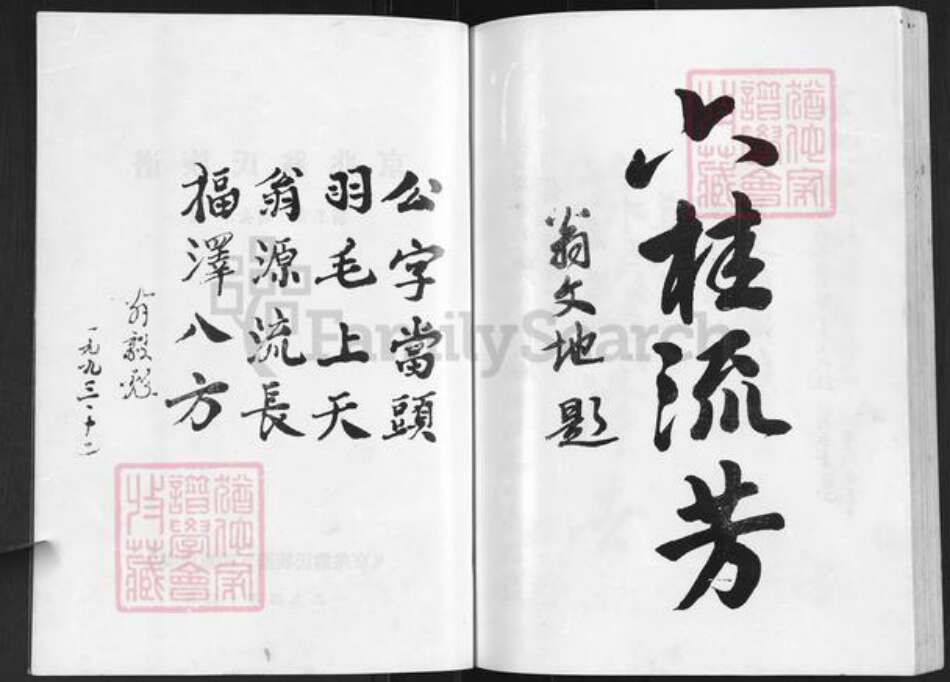 六桂流芳
翁文地 題
公字當頭
羽毛上天
翁源流長
福澤八方
翁毅
一九九三·十二
FamilySearch